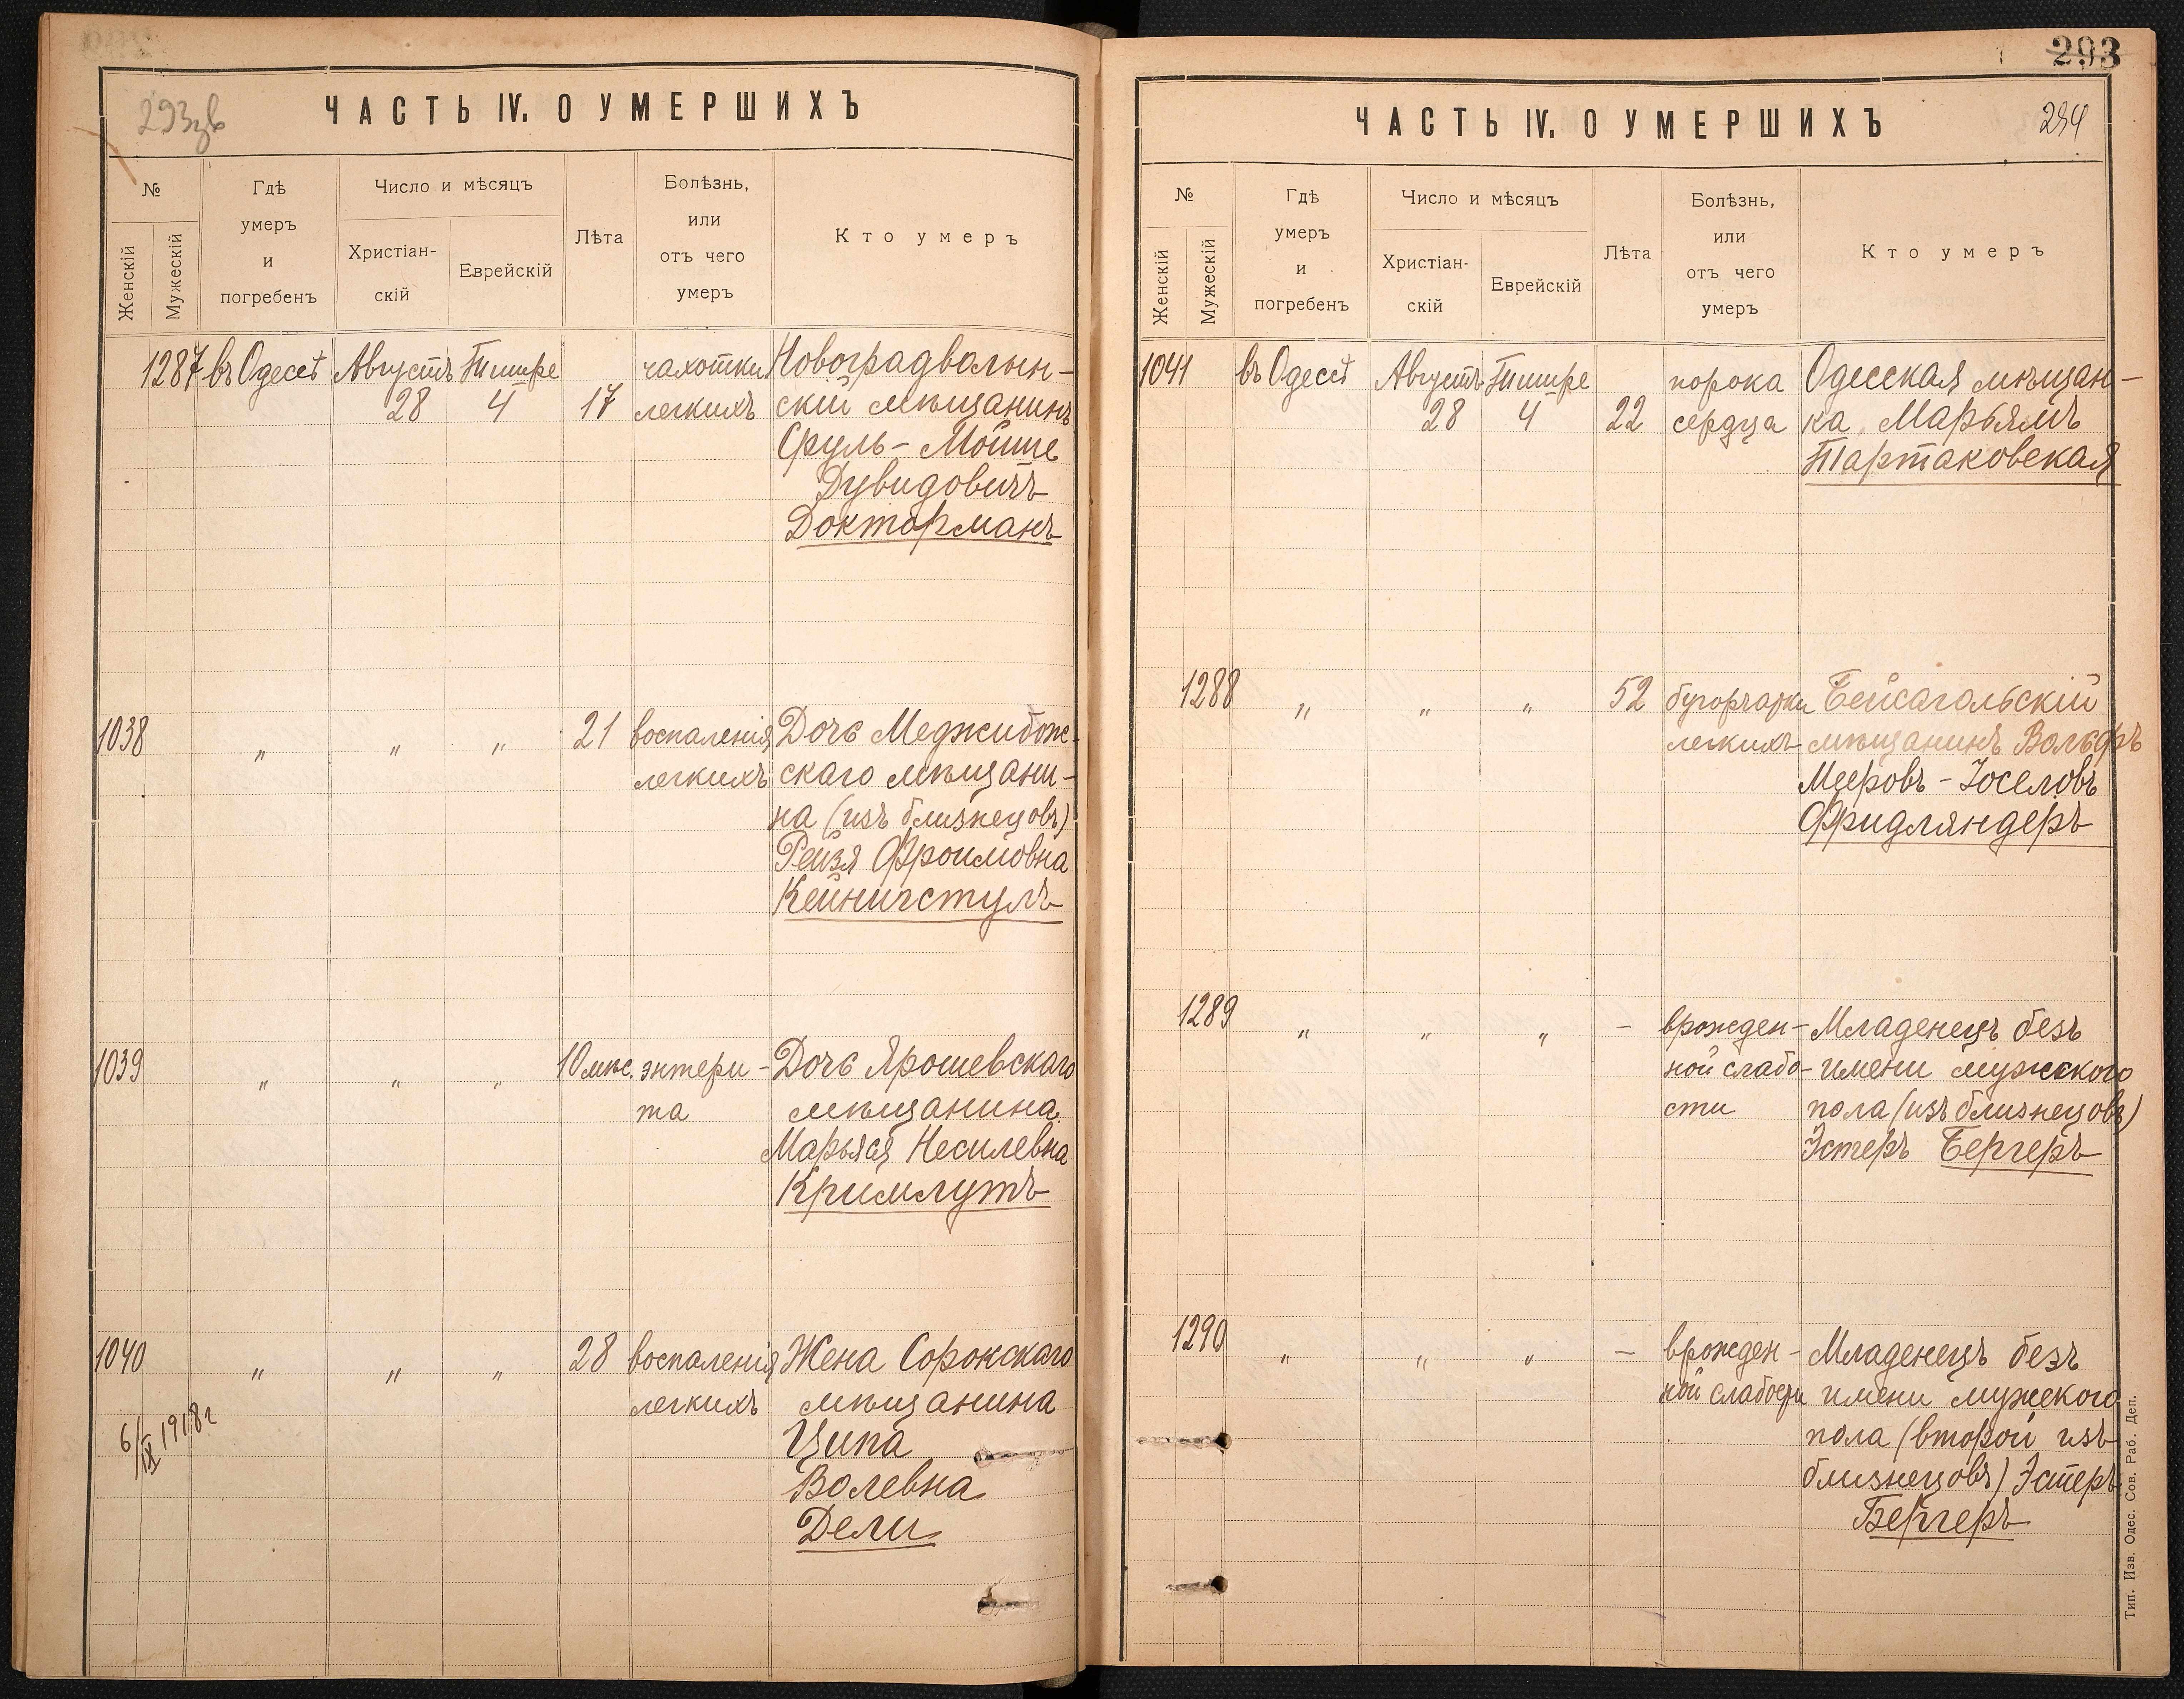 293зв
ЧАСТЬ IV. О УМЕРШИХЪ
№
Женскій
Мужескій
Гдѣ
умеръ
и
погребенъ
Число и мѣсяцъ
Христіан-
скій
Еврейскій
Лѣта
Болѣзнь,
или
отъ чего
умеръ
Кто умеръ
1287 въ Одессѣ Августъ Тишре чахотки Новоградволын-
28 4 17 легкихъ скій мѣщанинъ
Сруль-Мойше
Дувидовичъ
Докторманъ
1038 „ „ „ 21 воспаленія Дочь Меджибож-
легкихъ скаго мѣщани-
на (изъ близнецовъ)
Рейзя Фроимовна
Кейничстулъ
1039 „ „ „ 10 мѣс. энтери- Дочь Ярошевскаго
та мѣщанина
Марьяся Несилевна
Кримлутъ
1040 „ „ „ 28 воспаленія Жена Сорокскаго
легкихъ мѣщанина
Ципа
Волевна
Дели
6/IX 1918 г
293
ЧАСТЬ IV. О УМЕРШИХЪ
294
№
Женскій
Мужескій
Гдѣ
умеръ
и
погребенъ
Число и мѣсяцъ
Христіан-
скій
Еврейскій
Лѣта
Болѣзнь,
или
отъ чего
умеръ
Кто умеръ
1041 въ Одессѣ Августъ Тишре порока Одесская мѣщан-
28 4 22 сердца ка Марьямъ
Тартаковская
1288 „ „ „ 52 бугорчатки Бейсагольскій
легкихъ мѣщанинъ Вольфъ
Мееровъ-Іоселовъ
Фридляндеръ
1289 „ „ „ — врожден- Младенецъ безъ
ной слабо- имени мужского
сти пола (изъ близнецовъ)
Эстеръ Бергеръ
1290 „ „ „ — врожден- Младенецъ безъ
ной слабости имени мужского
пола (второй изъ
близнецовъ) Эстеръ
Бергеръ
Тип. Изв. Одес. Сов. Раб. Деп.